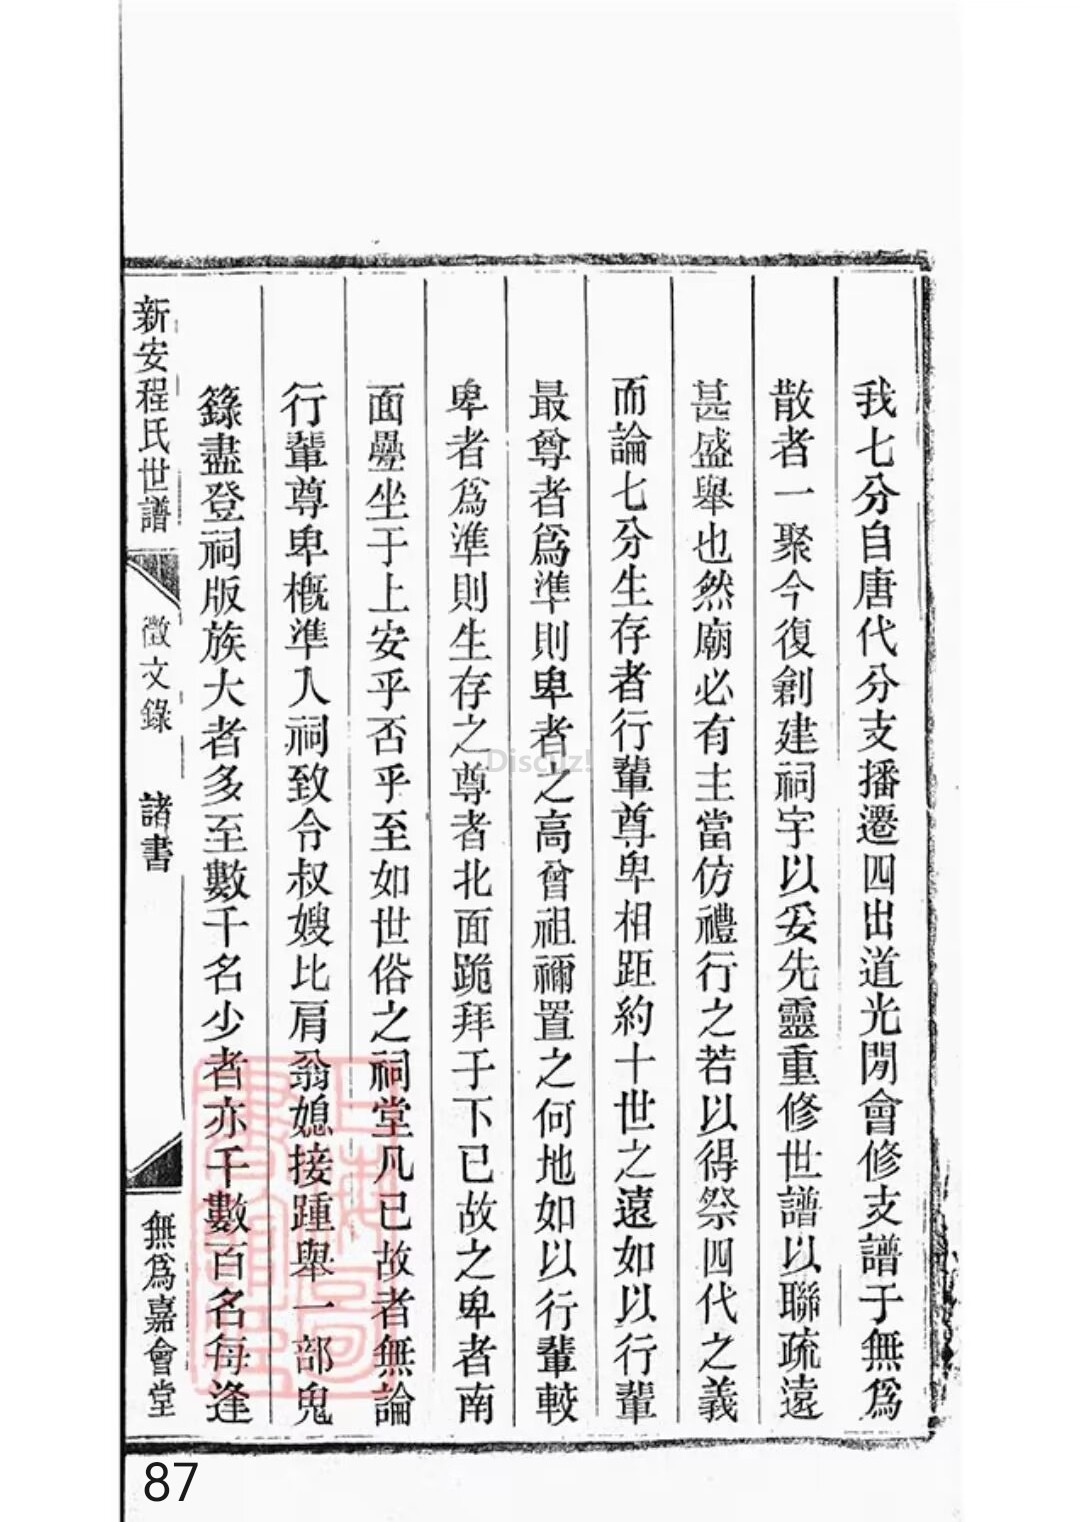 我七分自唐代分支播遷四出道光閒會修支譜于無爲
散者一聚今復創建祠宇以妥先靈重修世譜以聯疏遠
甚盛舉也然廟必有主當仿禮行之若以得祭四代之義
而論七分生存者行輩尊卑相距約十世之遠如以行輩
最尊者爲準則卑者之高曾祖禰置之何地如以行輩較
卑者爲準則生存之尊者北面跪拜于下已故之卑者南
面壘坐于上安乎否乎至如世俗之祠堂凡已故者無論
行輩尊卑概準入祠致令叔嫂比肩翁媳接踵舉一部鬼
錄盡登祠版族大者多至數千名少者亦千數百名每逢
新安程氏世譜
徵文錄 諸書
無爲嘉會堂
Discuz!
87